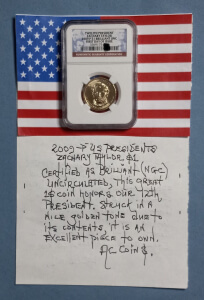 2009-P US PRESIDENTS
ZACHARY TAYLOR, $1
CERTIFIED AS BRILLIANT (NGC)
UNCIRCULATED, THIS GREAT
COIN HONORS OUR 12TH
PRESIDENT. STRUCK IN A
NICE GOLDEN TONE DUE TO
ITS CONTENTS, IT IS AN
EXCELLENT PIECE TO OWN.
AC COINS.